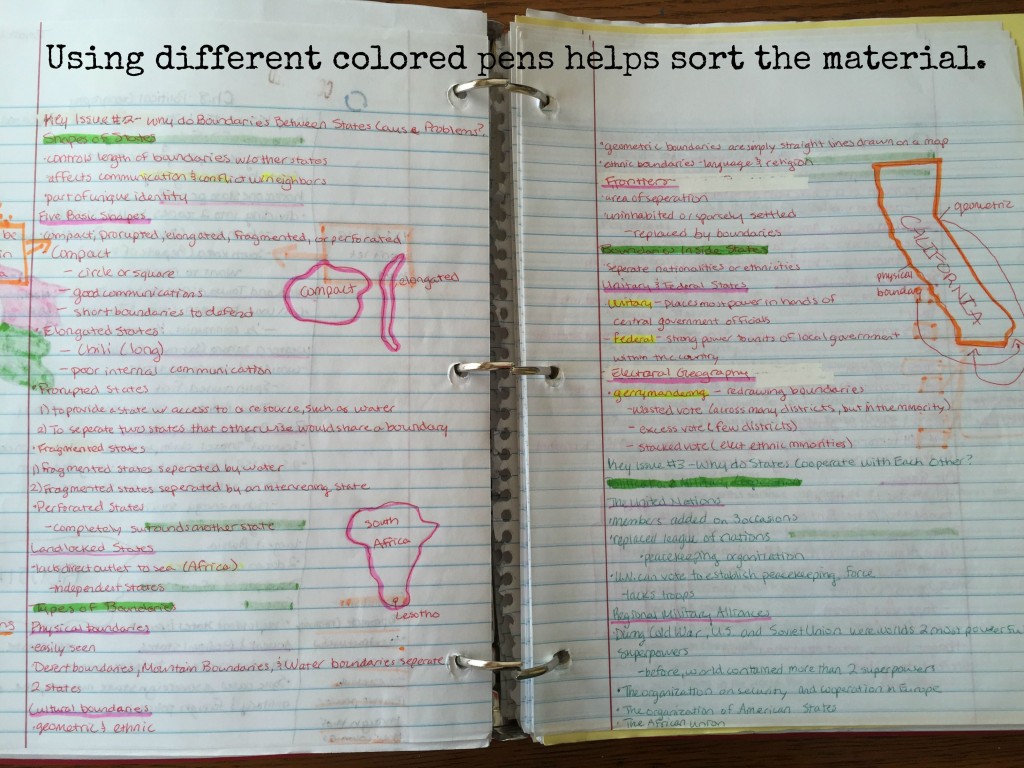 Using different colored pens helps sort the material.
Key Issue #2- Why do Boundaries Between States Cause Problems?
Shapes of States
·controls length of boundaries w/other states
·affects communication & conflict w/neighbors
·part of unique identity
Five Basic Shapes
·compact, prorupted, elongated, fragmented, or perforated
·Compact
- circle or square
- good communications
- short boundaries to defend
compact
elongated
·Elongated States:
- Chili (long)
- poor internal communication
·Prorupted States
1) to provide a state w/ access to a resource, such as water
2) To seperate two states that otherwise would share a boundary
·Fragmented States
1) fragmented states seperated by water
2) fragmented states seperated by an intervening state
·Perforated States
-completely surrounds another state
South
Africa
Lesotho
Landlocked States
·lack direct outlet to sea (Africa)
-independent states
Types of Boundaries
Physical boundaries
·easily seen
Desert boundaries, Mountain Boundaries, & Water boundaries seperate
2 states
Cultural boundaries
·geometric & ethnic
be
in
a
ng
·geometric boundaries are simply straight lines drawn on a map
·ethnic boundaries - language & religion
Frontiers
·area of seperation
·uninhabited or sparsely settled
-replaced by boundaries
Boundaries Inside States
·Seperate nationalities or ethnicities
Unitary & Federal States
Unitary - places most power in hands of
central government officials
- federal - strong power to units of local government
within the country
- Electoral Geography
·gerrymandering - redrawing boundaries
-wasted vote (across many districts, but in the minority)
- excess vote (few districts)
- stacked vote (elect ethnic minorities)
geometric
CALIFORNIA
physical
boundary
Key Issue #3 - Why do States Cooperate with Each Other?
The United Nations
·members added on 3 occasions
·replaced league of nations
·peacekeeping organization
·U.N. can vote to establish peacekeeping force
-lacks troops
Regional Military Alliances
·During Cold War, U.S. and Soviet Union were worlds 2 most powerful
superpowers
-before, world contained more than 2 superpowers
·The organization on security and cooperation in Europe
·The organization of American States
·The African union